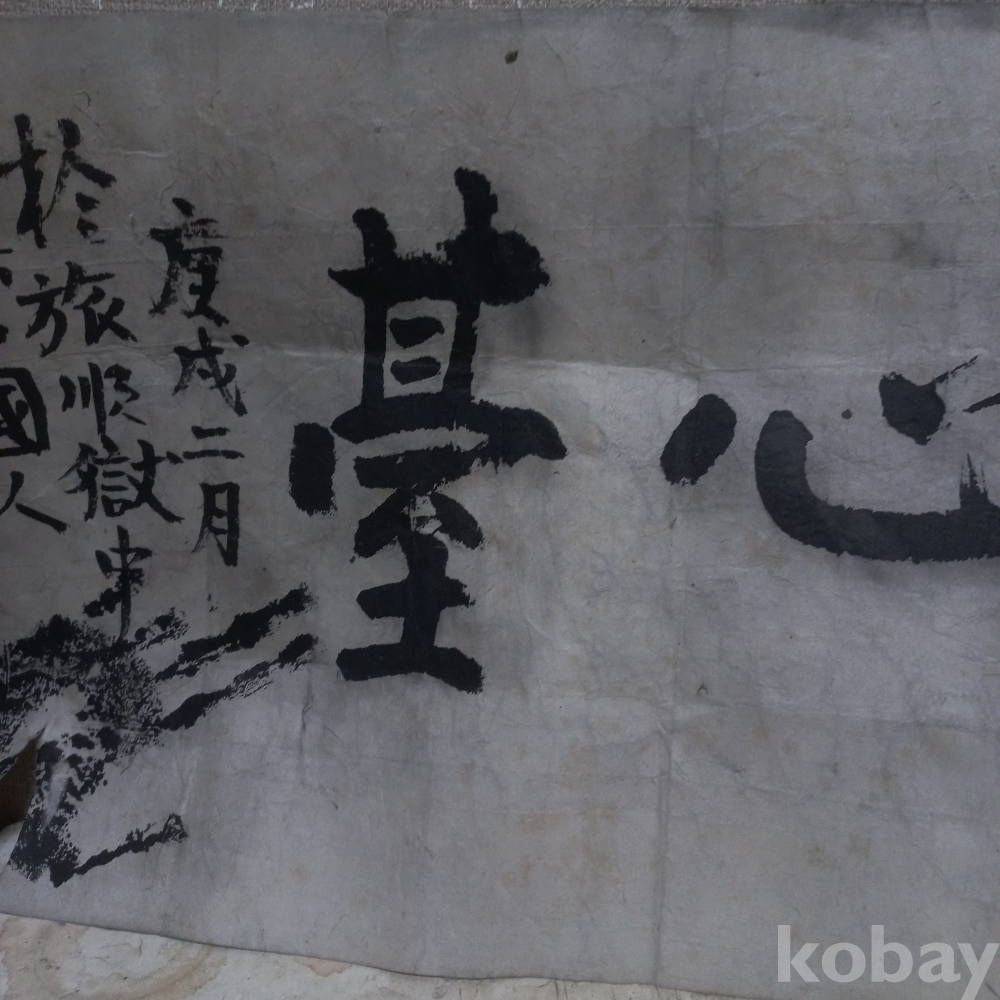 心臺
庚戌二月
於旅順獄中
國人
kobay